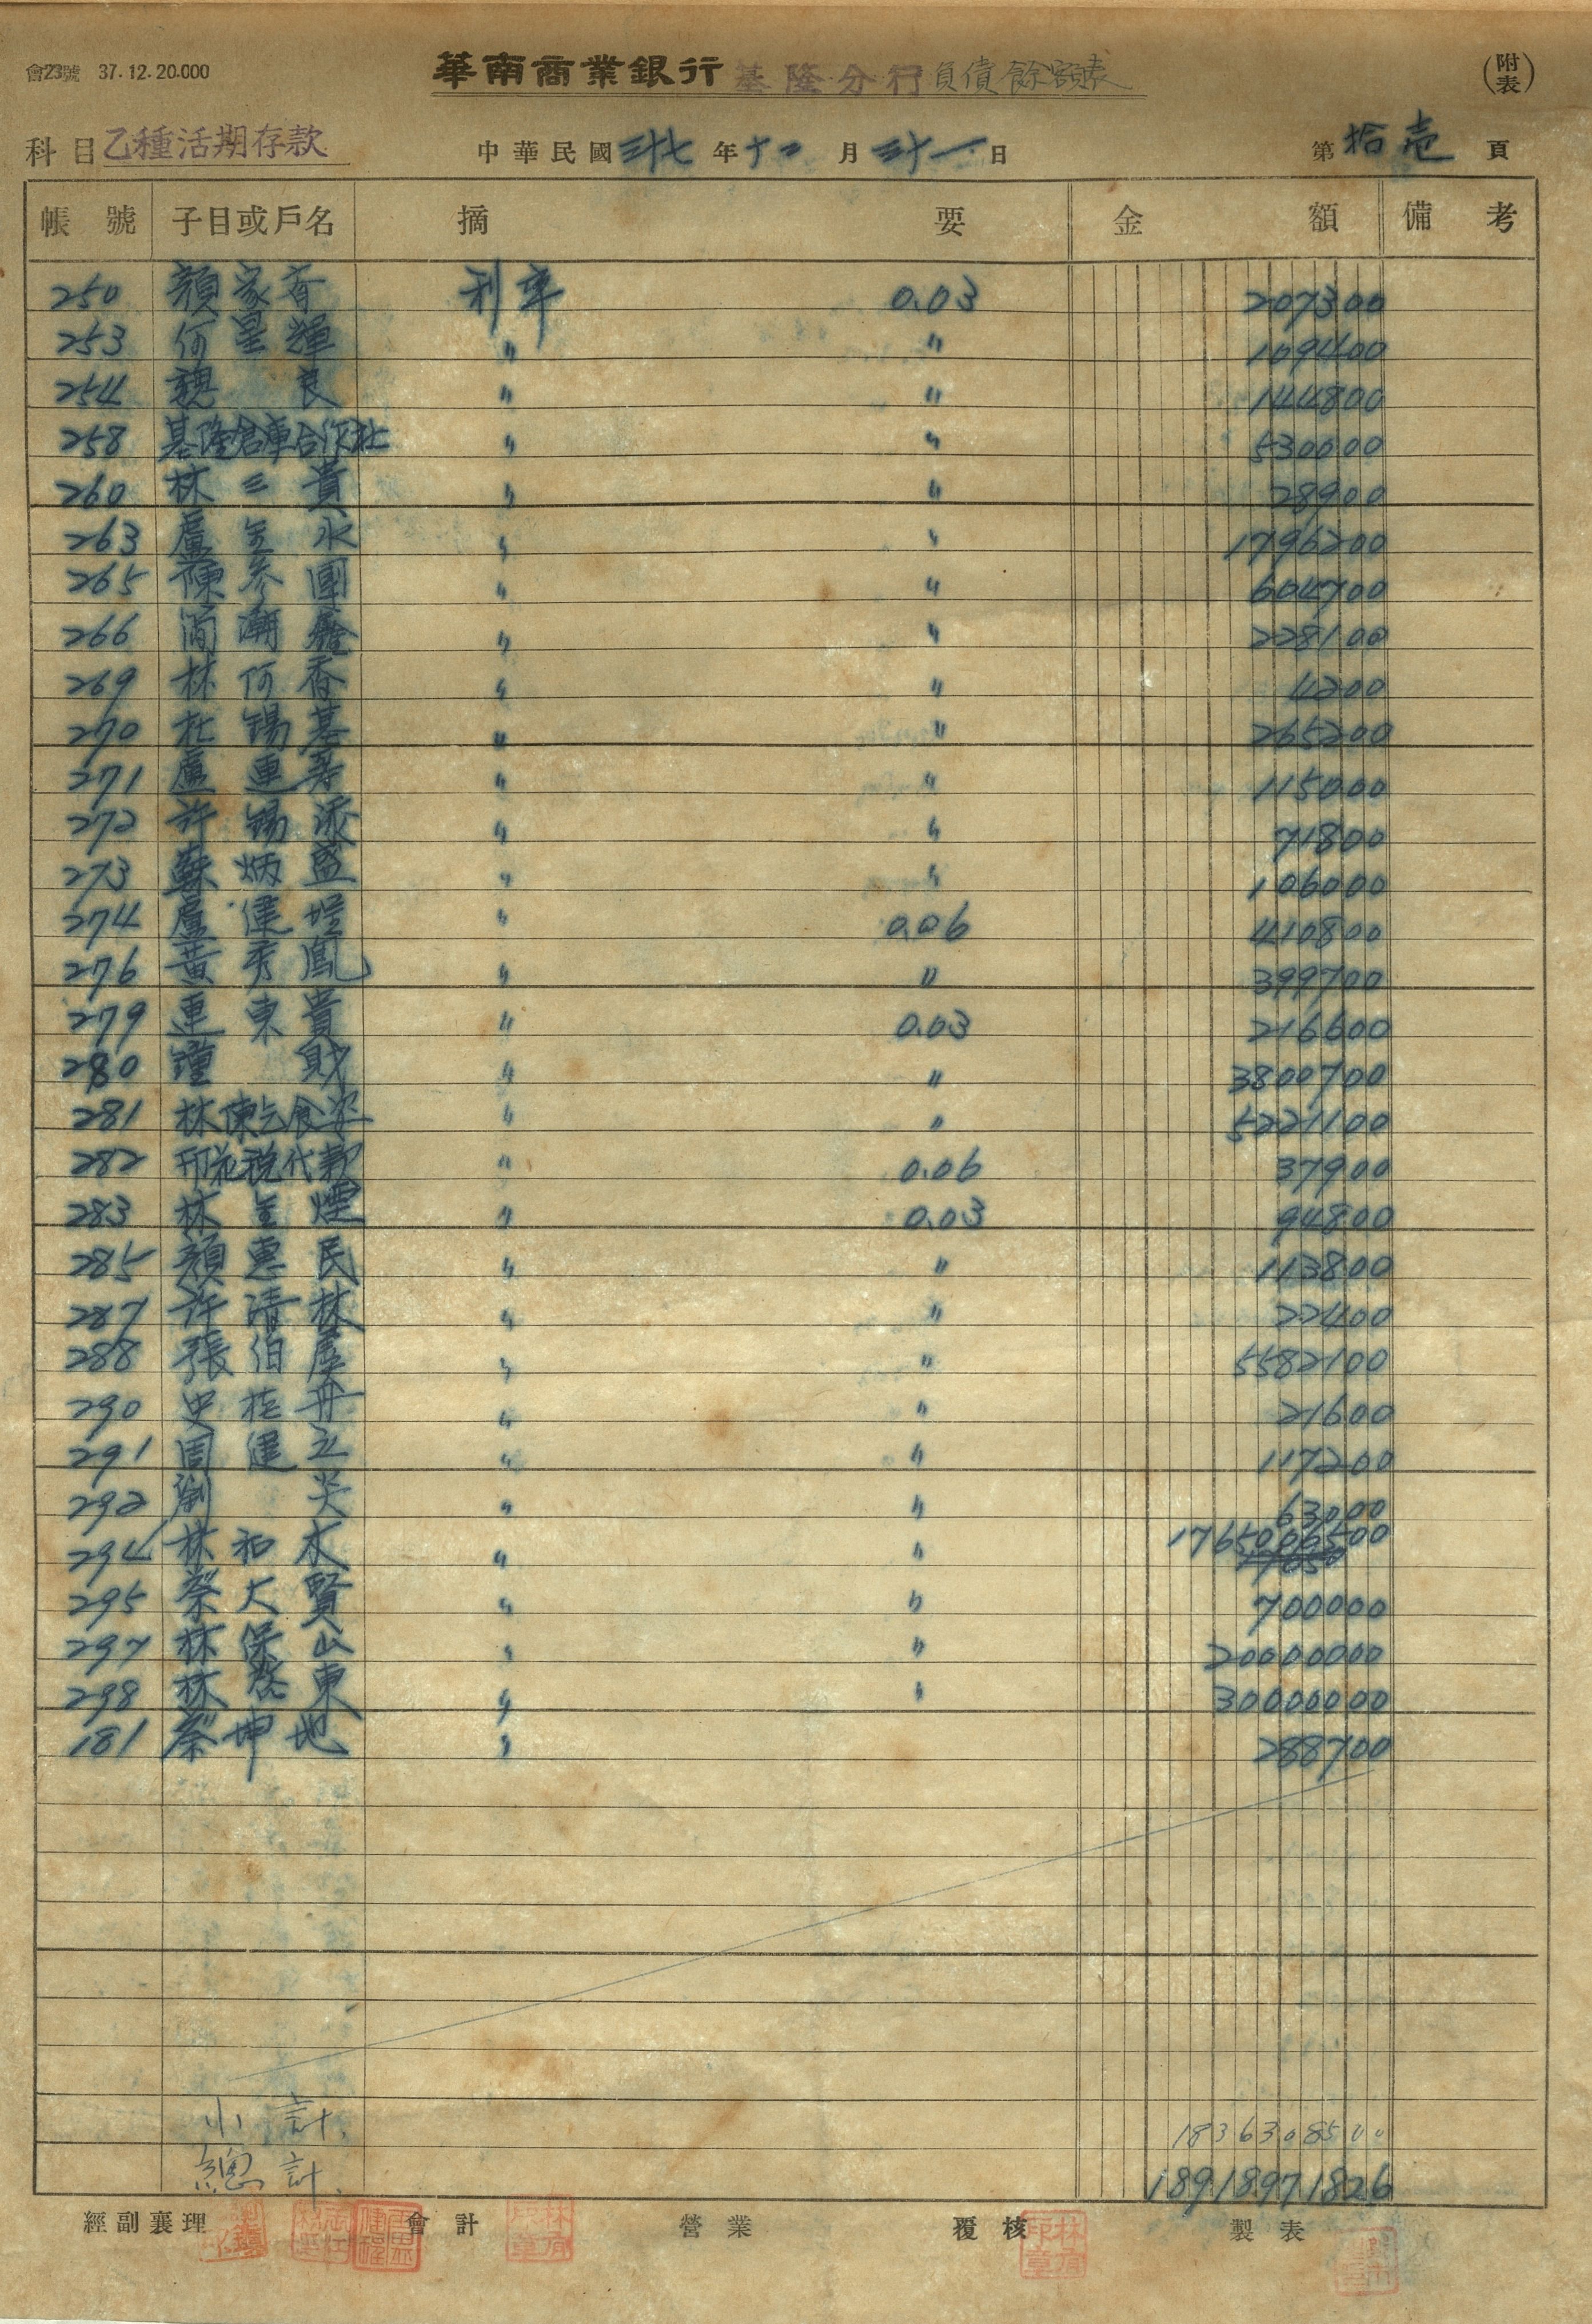 會23號 37.12.20.000
華南商業銀行 基隆分行 負債餘額表
(附表)
科目 乙種活期存款 中華民國 三十七 年 十二 月 三十一 日 第 拾壹 頁
帳號 子目或戶名 摘要 金額 備考
250 顏家齊 利率 0.03 207300
253 何星輝 〃 〃 109400
254 魏良 〃 〃 144800
258 基隆倉庫合作社 〃 〃 530000
260 林三貴 〃 〃 28900
263 盧金水 〃 〃 1796200
265 陳參圍 〃 〃 604700
266 簡潮 〃 〃 228100
269 林何香 〃 〃 4200
270 杜錫基 〃 〃 265200
271 盧連 〃 〃 115000
272 許錫添 〃 〃 71800
273 蘇炳盛 〃 〃 106000
274 盧建 〃 0.06 410800
276 黃秀鳳 〃 〃 399700
279 連東貴 〃 0.03 216600
280 鐘財 〃 〃 3800700
281 林陳 〃 〃 5221100
282 印花稅代款 〃 0.06 37900
283 林金煙 〃 0.03 94800
285 顏惠民 〃 〃 113800
287 許清林 〃 〃 22400
288 張伯 〃 〃 5582100
290 史桂丹 〃 〃 21600
291 周運 〃 〃 117200
292 劉 〃 〃 63000
294 林和木 〃 〃 1765006500
295 蔡大賢 〃 〃 700000
297 林保山 〃 〃 20000000
298 林啓東 〃 〃 30000000
181 蔡坤地 〃 288700
小計 1836308500
總計 18918971826
經副襄理 會計 營業 覆核 製表